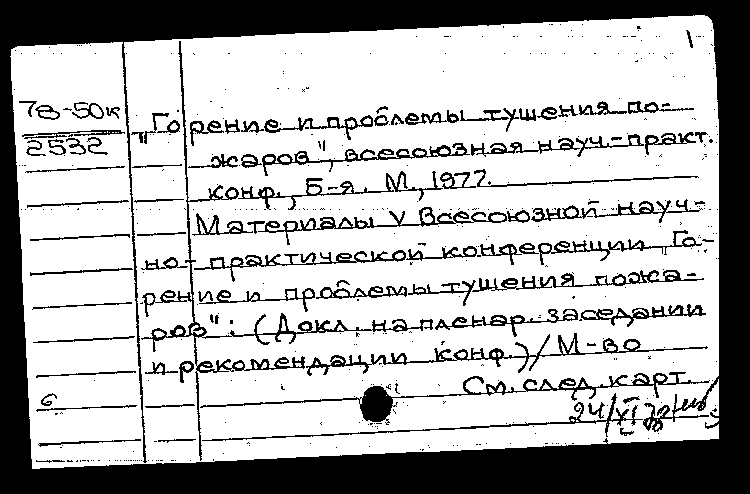 1
78-50к
2532
"Горение и проблемы тушения по-
жаров", всесоюзная науч.-практ.
конф., 5-я. М., 1977.
Материалы V Всесоюзной науч-
но-практической конференции „Го-
рение и проблемы тушения пожа-
ров": (Докл. на пленар. заседании
и рекомендации конф.) / М-во
См. след. карт.
6
24/XI